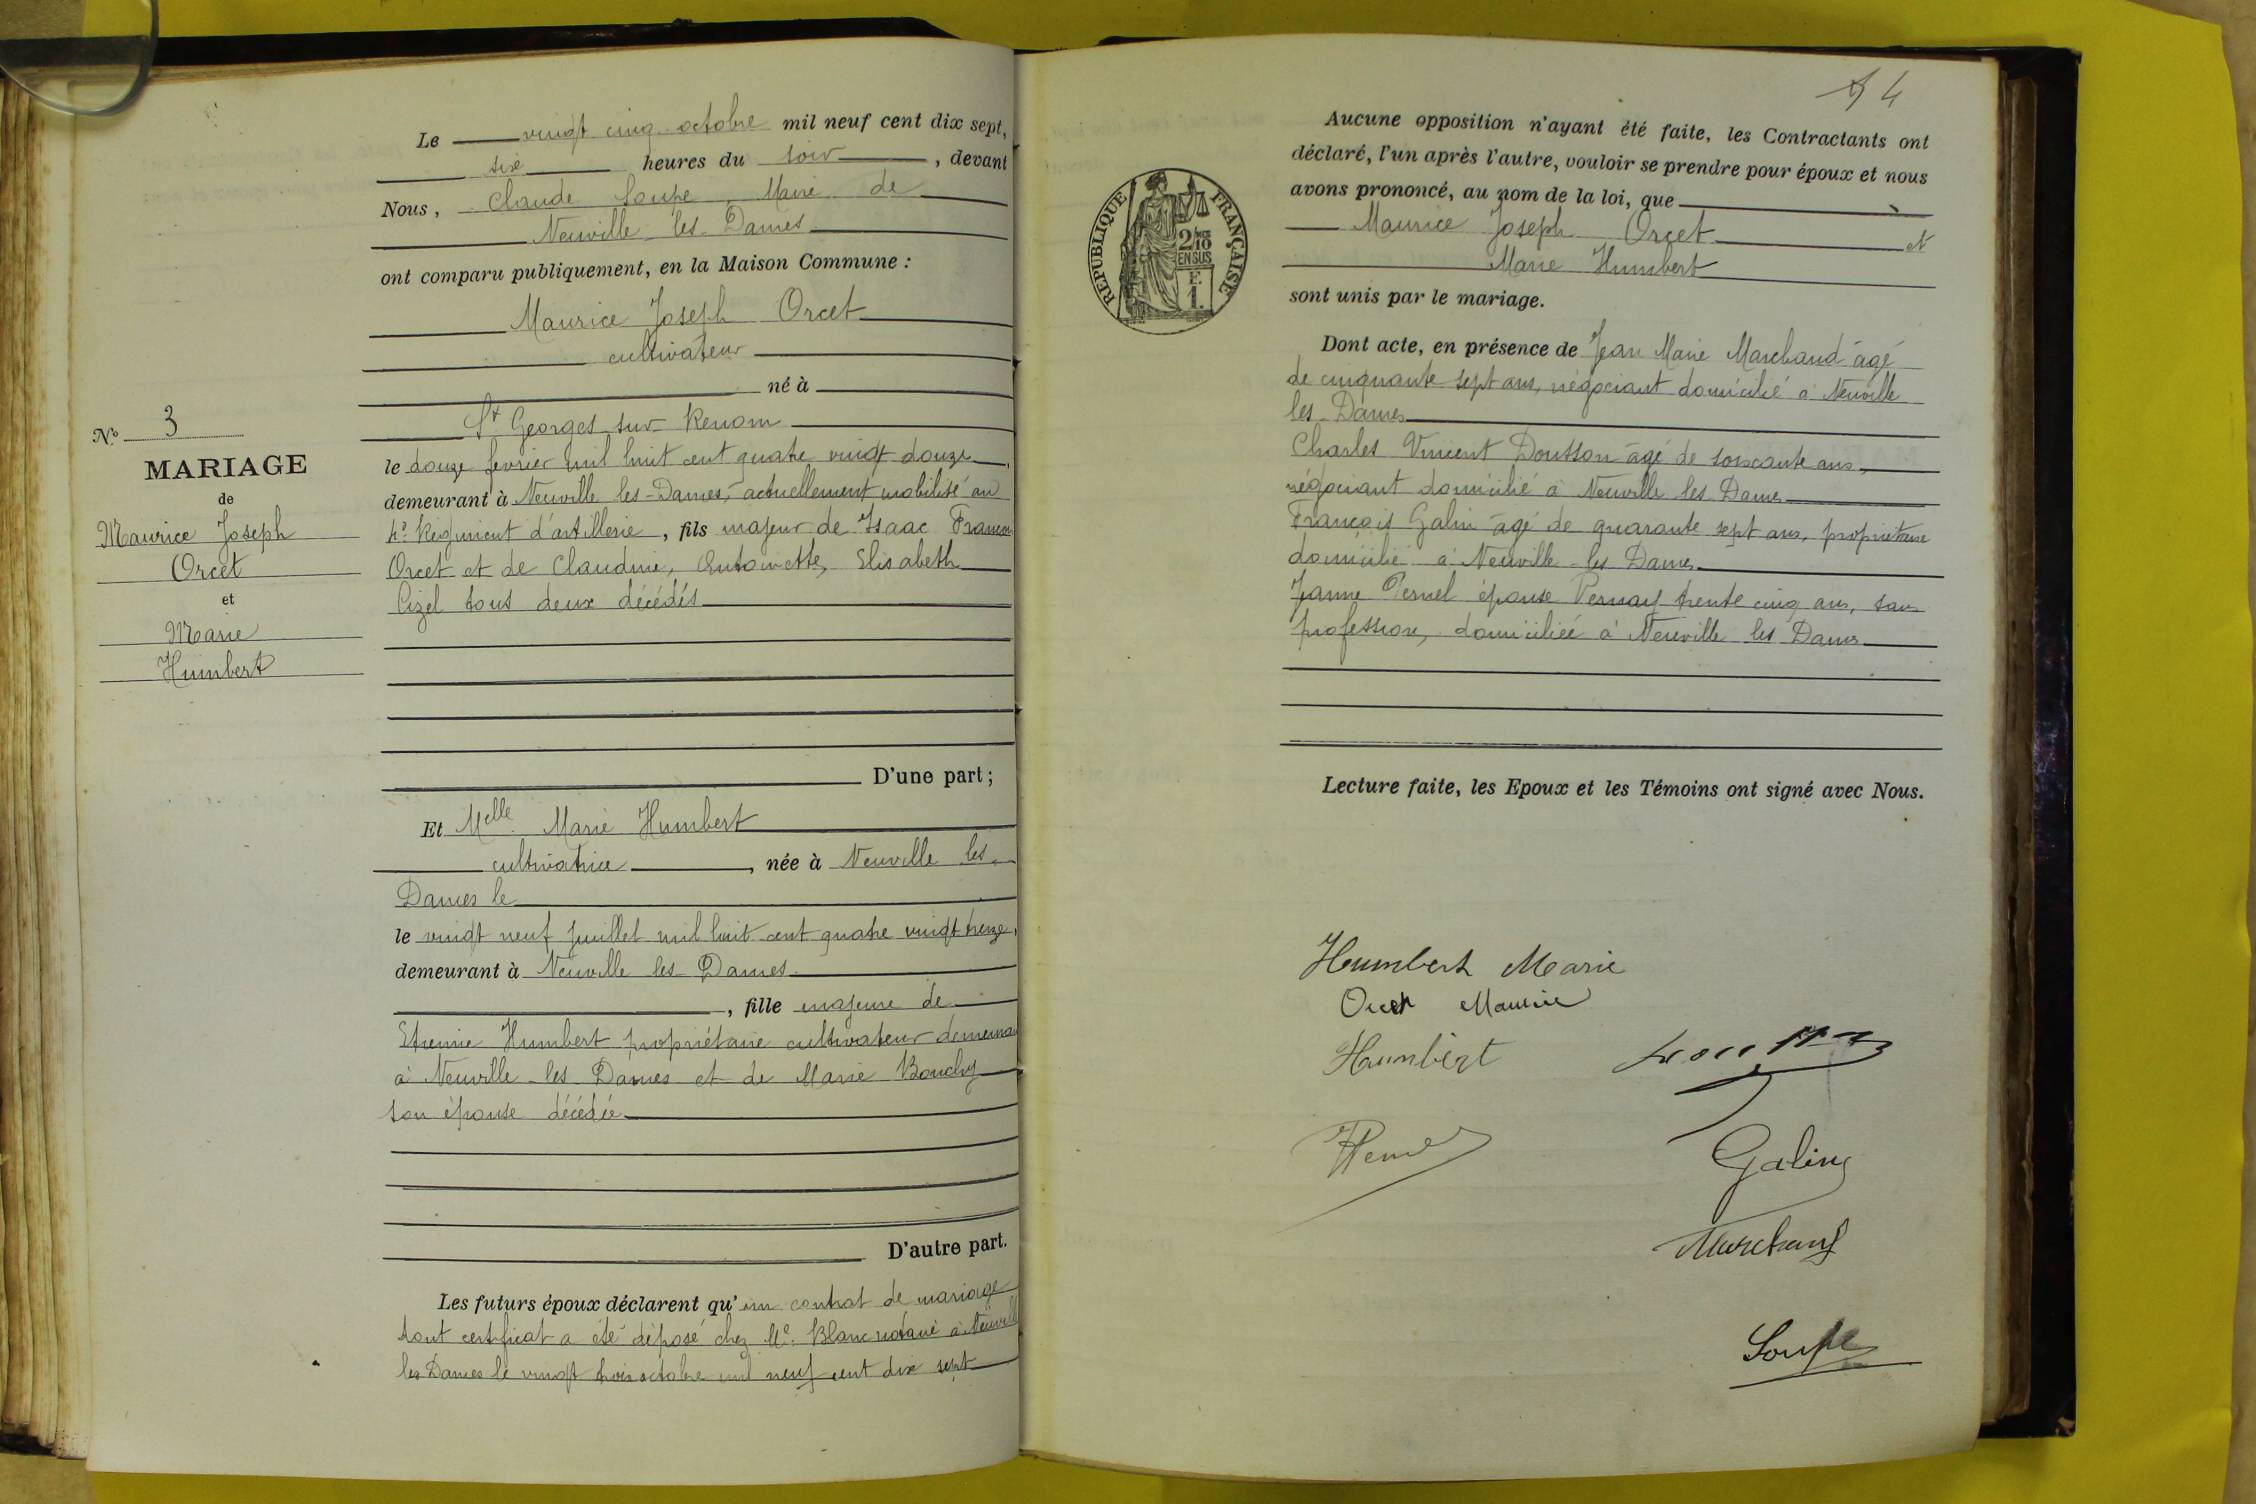 Le vingt cinq octobre mil neuf cent dix sept,
six heures du soir, devant
Nous, Claude Soupe, Maire de
Neuville les Dames
ont comparu publiquement, en la Maison Commune :
Maurice Joseph Orcet
cultivateur
né à
St Georges sur Renom
le douze fevrier mil huit cent quatre vingt douze,
demeurant à Neuville les-Dames, actuellement mobilisé au
4e Régiment d'artillerie, fils majeur de Isaac
Orcet et de Claudine, Antoinette, Elisabeth
tous deux décédés
D'une part ;
Et Melle Marie Humbert
cultivatrice, née à Neuville les
Dames le
le vingt neuf juillet mil huit cent quatre vingt treize,
demeurant à Neuville les Dames
, fille majeure de
Etienne Humbert propriétaire cultivateur
à Neuville les Dames et de Marie Bouchy
son épouse décédée
D'autre part.
Les futurs époux déclarent qu'un contrat de mariage
dont certificat a été déposé chez Me. Blanc notaire à Neuville
les Dames le vingt trois octobre mil neuf cent dix sept
No 3
MARIAGE
de
Maurice Joseph
Orcet
et
Marie
Humbert
4
RÉPUBLIQUE FRANÇAISE
2/10
EN SUS
F.
1.
Aucune opposition n'ayant été faite, les Contractants ont
déclaré, l'un après l'autre, vouloir se prendre pour époux et nous
avons prononcé, au nom de la loi, que
Maurice Joseph Orcet et
Marie Humbert
sont unis par le mariage.
Dont acte, en présence de Jean Marie Marchand âgé
de cinquante sept ans, négociant domicilié à Neuville
les Dames
Charles Vincent âgé de soixante ans,
négociant domicilié à Neuville les Dames
François Galin âgé de quarante sept ans, propriétaire
domicilié à Neuville les Dames
Jeanne épouse trente cinq ans, sans
profession, domiciliée à Neuville les Dames
Lecture faite, les Epoux et les Témoins ont signé avec Nous.
Humbert Marie
Orcet Maurice
Humbert
Galin
Marchand
Soupe